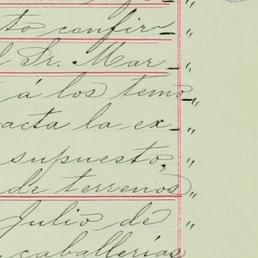 to confir-"
l Sr. Mar-"
á los temo-"
acta la ex-"
supuesto, "
de terrenos "
Julio de "
caballerías "